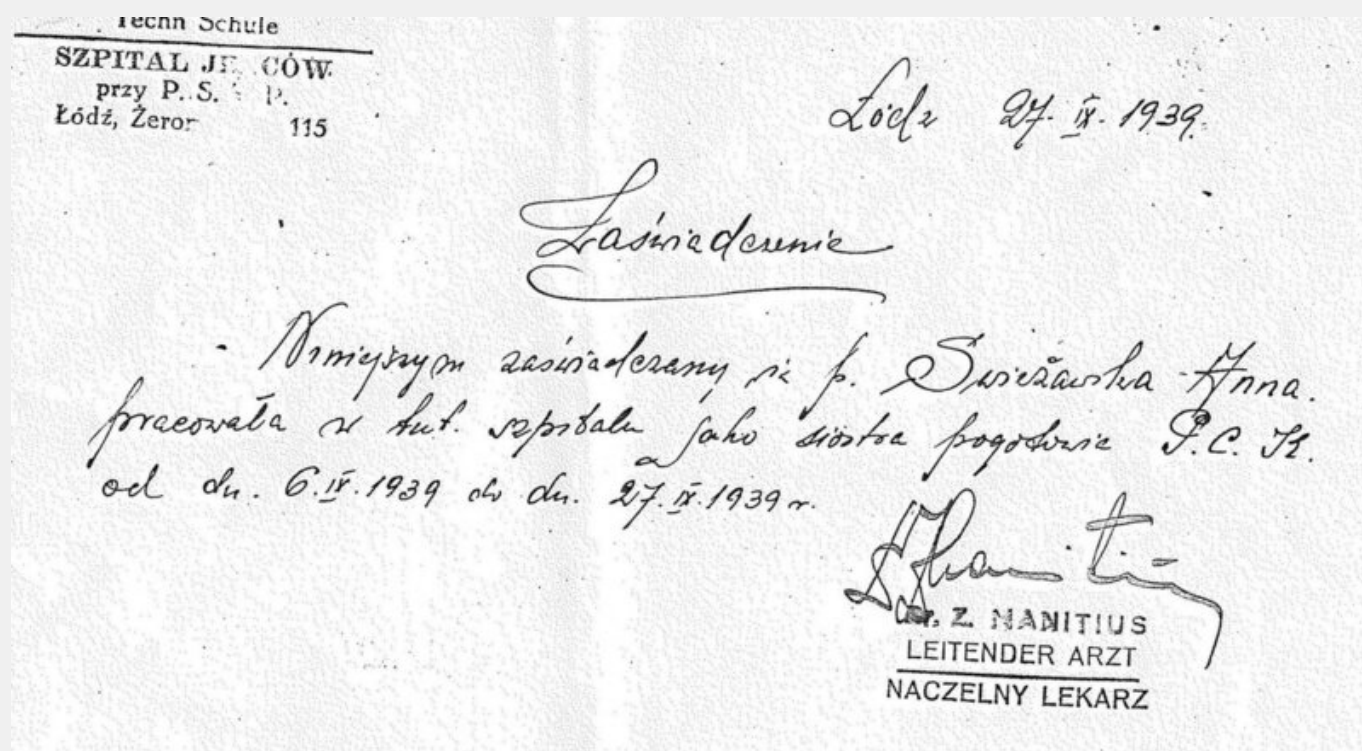 Techn Schule
SZPITAL JE CÓW
przy P. S. P.
Łódź, Żerom 115
Łódź 27.IX.1939.
Zaświadczenie
Niniejszym zaświadczamy że p. Świeżawska Anna.
pracowała w tut. szpitalu jako siostra pogotowia P.C.K.
od dn. 6.IX.1939 do dn. 27.IX.1939 r.
Dr. Z. MANITIUS
LEITENDER ARZT
NACZELNY LEKARZ